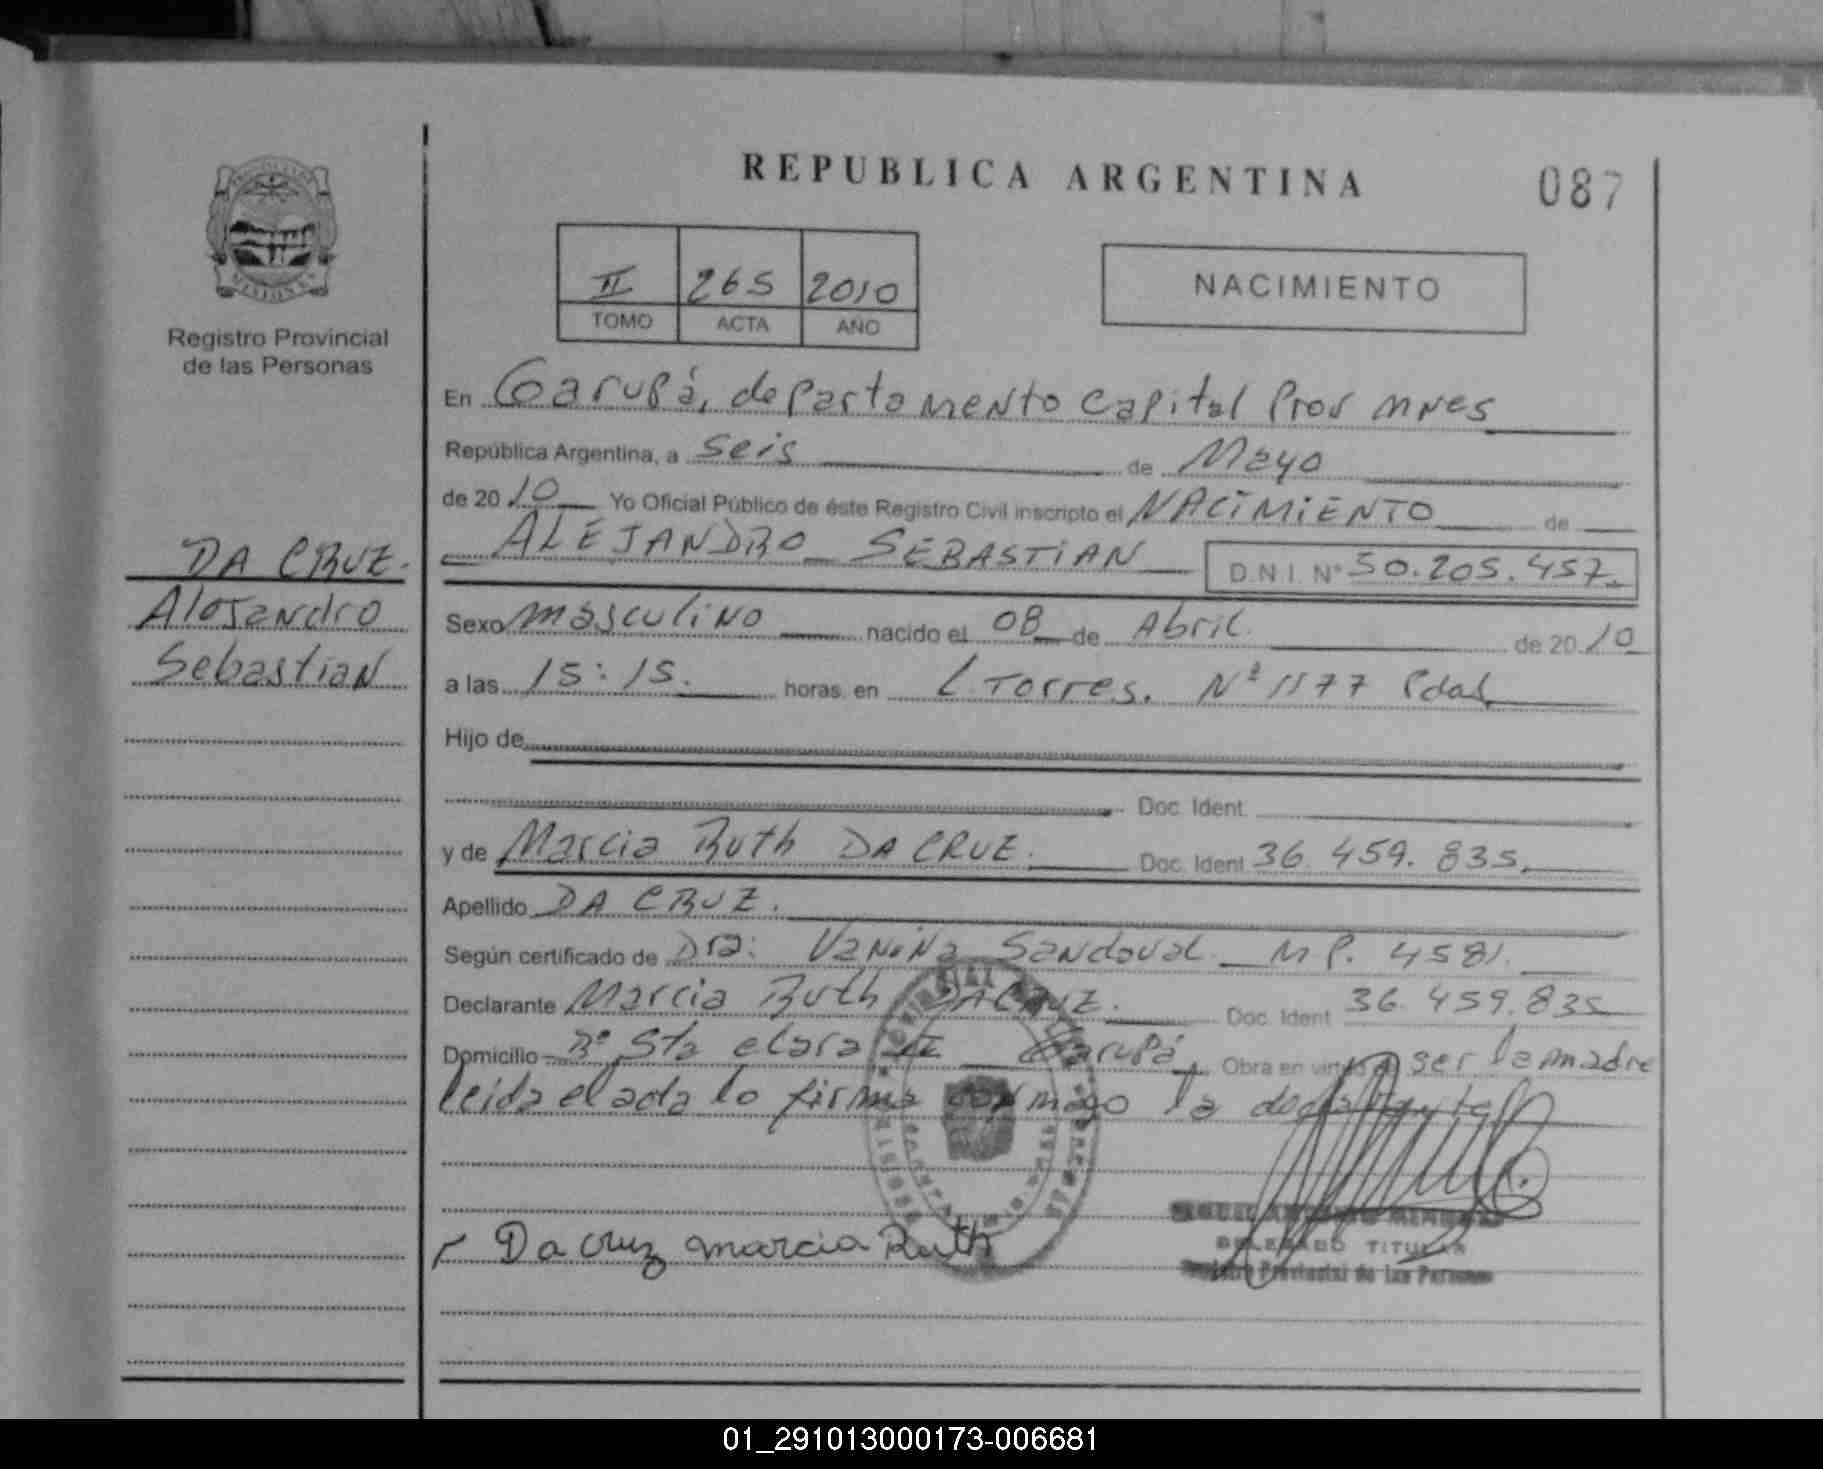 REPUBLICA ARGENTINA
087
II 265 2010
TOMO ACTA AÑO
NACIMIENTO
PROVINCIA
MISIONES
Registro Provincial
de las Personas
DA CRUZ.
Alejandro
Sebastian
En Garupá, departamento Capital Prov mnes
República Argentina, a seis de Mayo
de 2010 Yo Oficial Público de éste Registro Civil inscripto el NACIMIENTO de
ALEJANDRO SEBASTIAN D.N.I. Nº 50.205.457.
Sexo masculino nacido el 08 de Abril. de 2010
a las 15:15. horas. en L. Torres. Nº 1177 Pdas
Hijo de
Doc. Ident.
y de Marcia Ruth DA CRUZ. Doc. Ident 36.459.835.
Apellido DA CRUZ.
Según certificado de Dra: Vanina Sandoval. MP. 4581.
Declarante Marcia Ruth DA CRUZ. Doc. Ident 36.459.835
Domicilio Bº Sta clara II Garupá Obra en virtud de ser la madre
leida el acta lo firma conmigo la declarante
Da Cruz marcia Ruth
DELEGADO TITULAR
Registro Provincial de las Personas
01_291013000173-006681